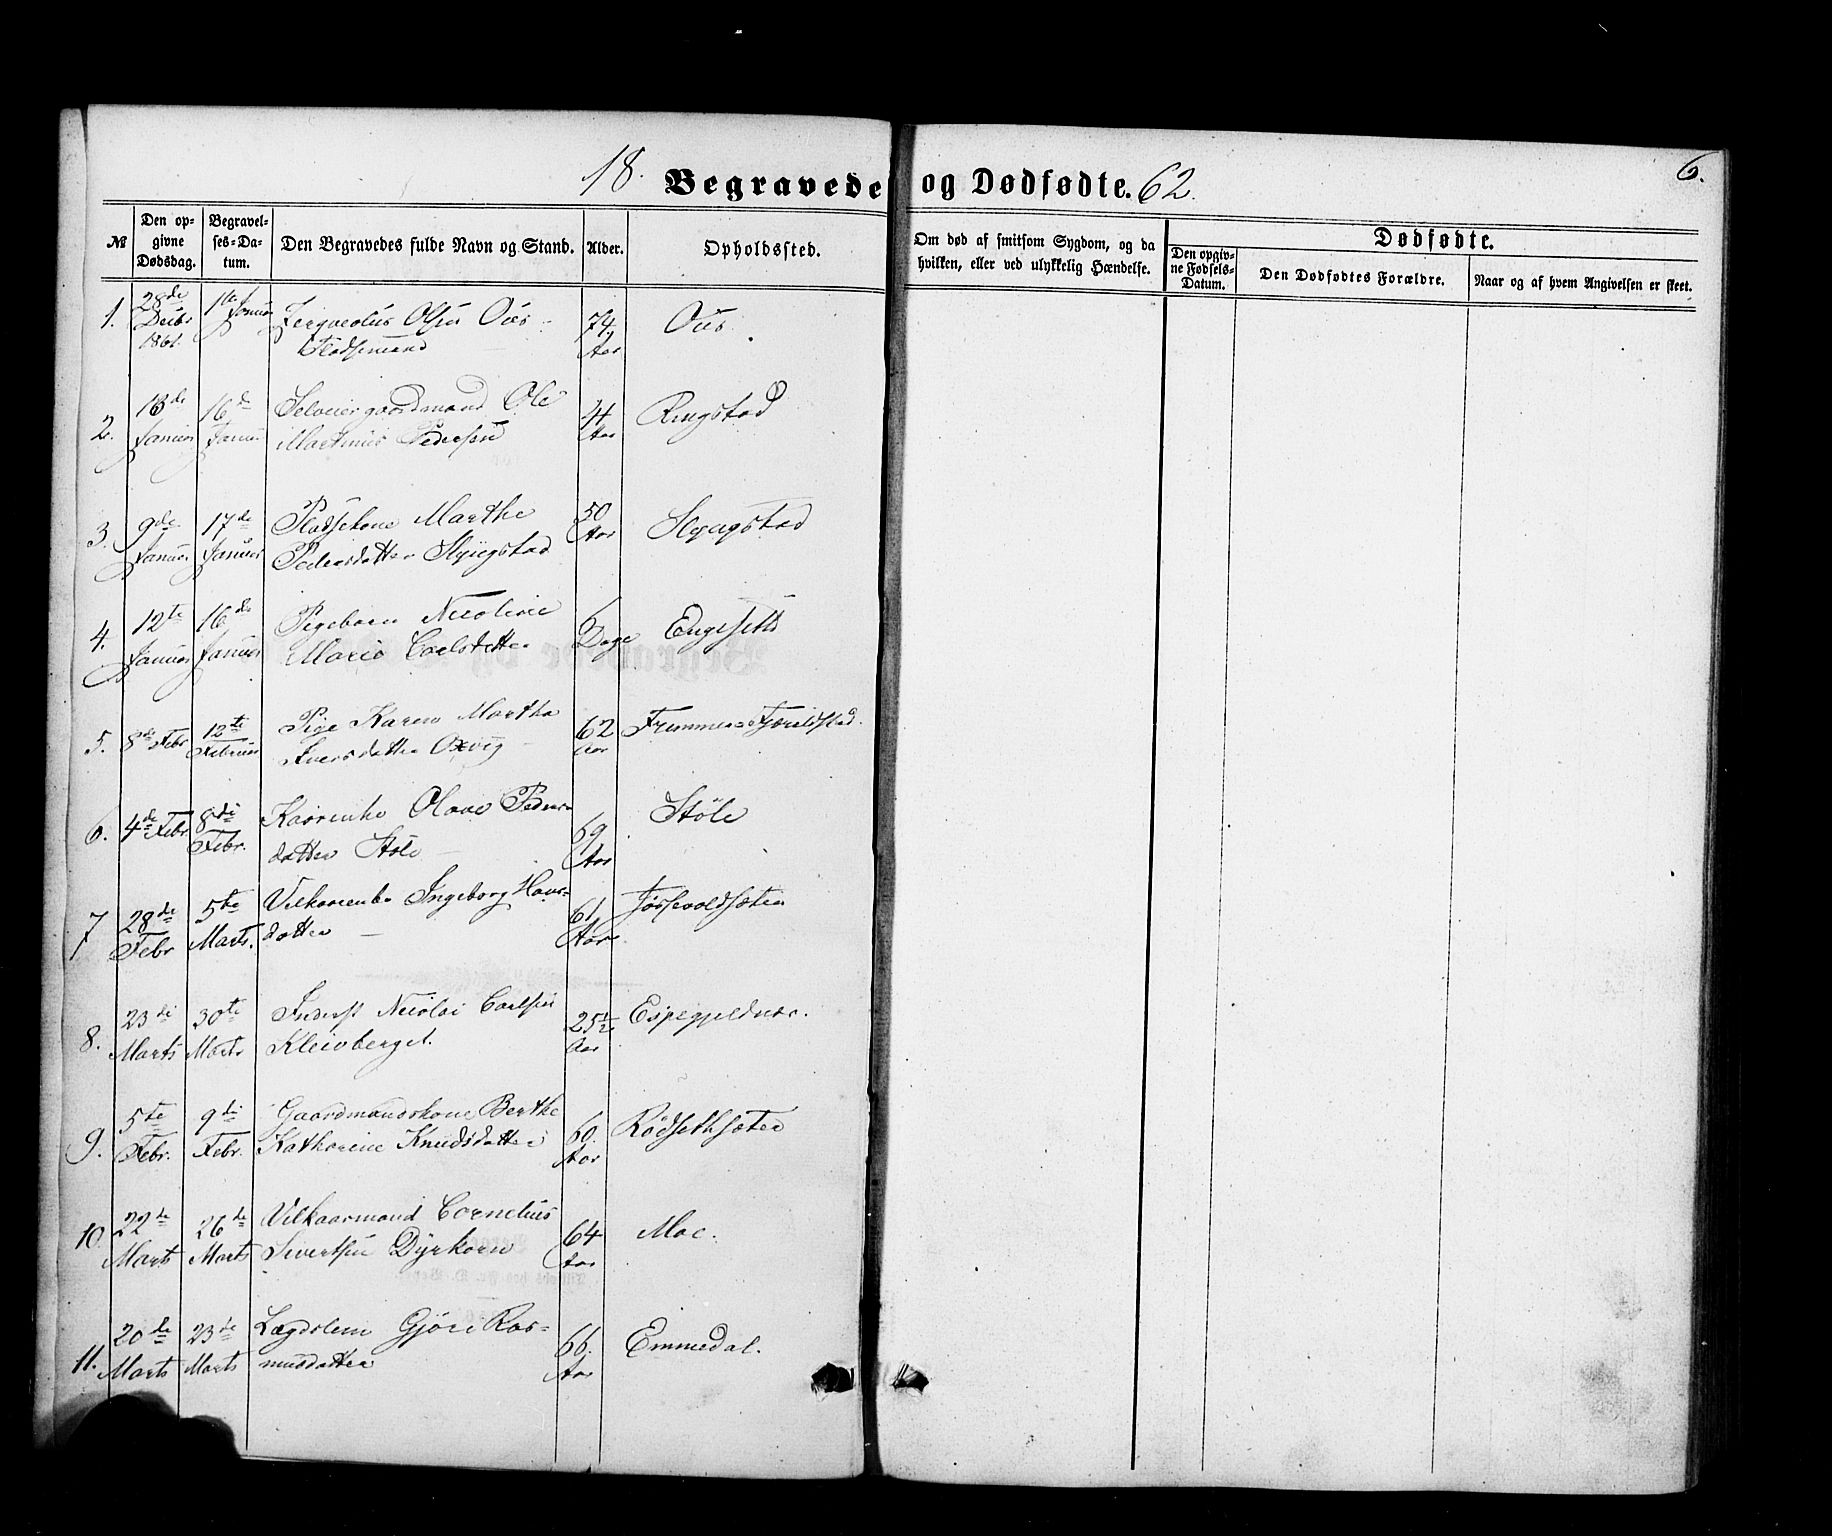 18. Begravede og Dødfødte. 62.
6.
№
Den op-
givne
Dødsdag.
Begravel-
ses-Da-
tum.
Den Begravedes fulde Navn og Stand.
Alder.
Opholdssted.
Om død af smitsom Sygdom, og da
hvilken, eller ved ulykkelig Hændelse.
Dødfødte.
Den opgiv-
ne Fødsels-
Datum.
Den Dødfødtes Forældre.
Naar og af hvem Angivelsen er skeet.
1.
28de
Decbr
1861.
1te Januar
Olsen Ous
Pladsemand
74
Aar
Ous
2.
Januar
16de
Januar
Selveiergaardmand Ole
Martinus Pedersen
Aar
Ringstad
3.
9de
Januar
17de
Januar
Pladsekone Marthe
Pedersdatter
50
Aar
4.
12te
Januar
16de
Januar
Pigebarn Nicoline
Marie Carlsdatter
6
Dage
Engeseth
5.
8de Febr
12te
Februar
Pige Karen Martha
Iversdatter Oxvig
62
Aar
6.
4de Febr
8de
Febr.
Olave Peders-
datter Støle
69
Aar
Støle
7
28de
Febr
5te
Marts.
Ingeborg Hans-
datter
61
Aar
8.
23de
Marts
30te
Marts
Inderst Nicolai Carlsen
Kleivberget.
25½
Aar
9.
5te
Febr.
9de
Febr.
Gaardmandskone Berthe
Katharine Knudsdatter
60.
Aar
Rødsethsæter
10.
22de
Marts
26de
Marts
Vilkaarmand Cornelius
Sivertsen Dyrkorn
64
Aar
Moe.
11.
20de
Marts
23de
Marts
Lægdslem Gjøri Ras-
musdatter
66.
Aar
Emmedal.